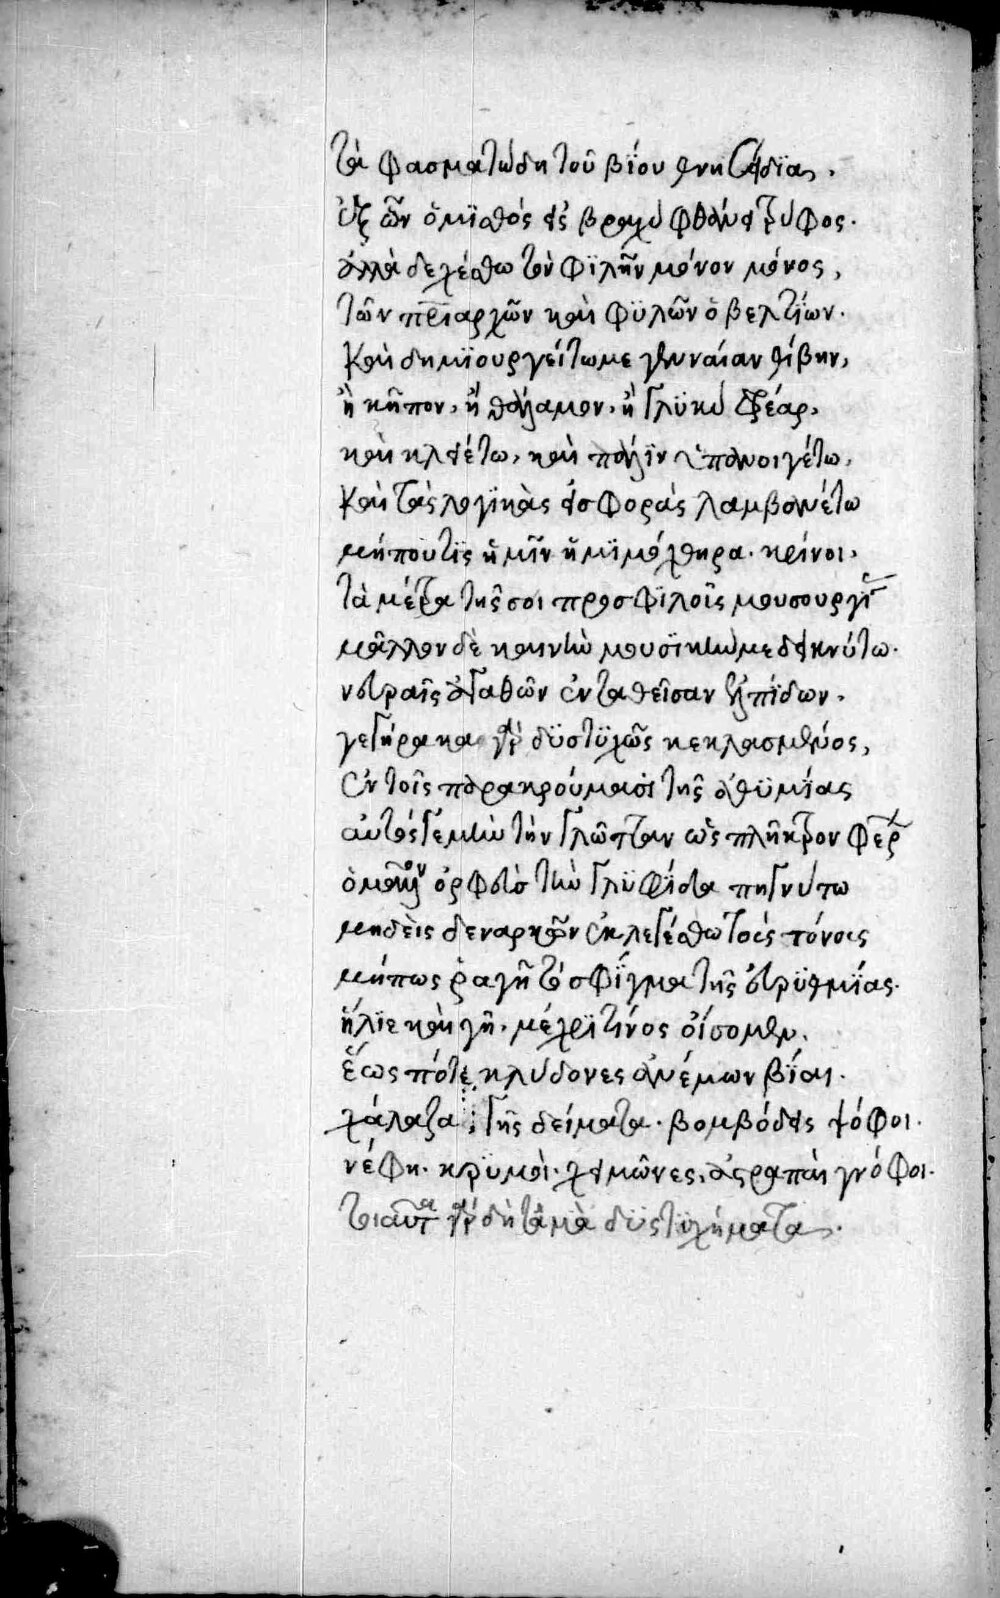 τὰ φασματώδη τοῦ βίου θνησείδια.
ἐξ ὧν ὁ μισθὸς εἰς βραχὺ φθάνει τρύφος.
ἀλλὰ δεχέσθω τὸν φιλῆν μόνον μόνος,
τῶν πριαρχῶν καὶ φυλῶν ὁ βελτίων.
καὶ δημιουργείτω με γενναίαν θίβην,
ἢ κῆπον, ἢ θάλαμον, ἢ γλυκὺ φρέαρ,
καὶ κλειέτω, καὶ πάλιν ὑπανοιγέτω,
καὶ τὰς λογικὰς εἰσφορὰς λαμβανέτω
μήπού τις ἡμῖν ἡμιμόχθηρα κρίνοι,
τὰ μέτρα τῆς σοι προσφιλοῦς μουσουργίας
μᾶλλον δὲ καινὴν μουσικήν με δεικνύτω.
νευραῖς ἀγαθῶν ἐνταθεῖσαν ἐλπίδων.
γεγήρακα γὰρ δυστυχῶς κεκλασμένος,
ἐν τοῖς παρακρούμασι τῆς ἀθυμίας
αὐτὸς γε μὴν τὴν γλῶτταν ὡς πλῆκτρον φέρων
ὁ μανουὴλ ὀρφεὺς τὴν γλυφίδα πηγνύτω
μηδεὶς δὲ ναρκῶν ἐκλεγέσθω τοὺς τόνους
μήπως ῥαγῇ τὸ σφίγμα τῆς εὐρυθμίας.
ἥλιε καὶ γῆ, μέχρι τίνος οἴσομεν,
ἕως πότε κλύδονες ἀνέμων βίαι.
χάλαζα, γῆς δείματα. βομβώδεις ψόφοι.
νέφη. κρυμοὶ. χειμῶνες, ἀστραπαὶ γνόφοι.
τοιαῦτα γὰρ δὴ τἀμὰ δυστυχήματα.